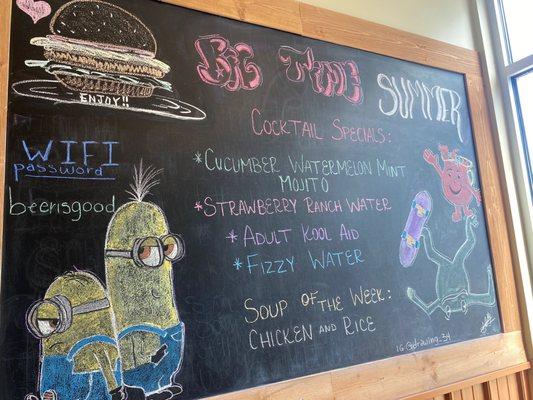 ENJOY!!
BIG TIME SUMMER
COCKTAIL SPECIALS:
WIFI
password
beerisgood
*CUCUMBER WATERMELON MINT
MOJITO
*STRAWBERRY RANCH WATER
*ADULT KOOL AID
*FIZZY WATER
SOUP OF THE WEEK:
CHICKEN AND RICE
IG:@drawing_34